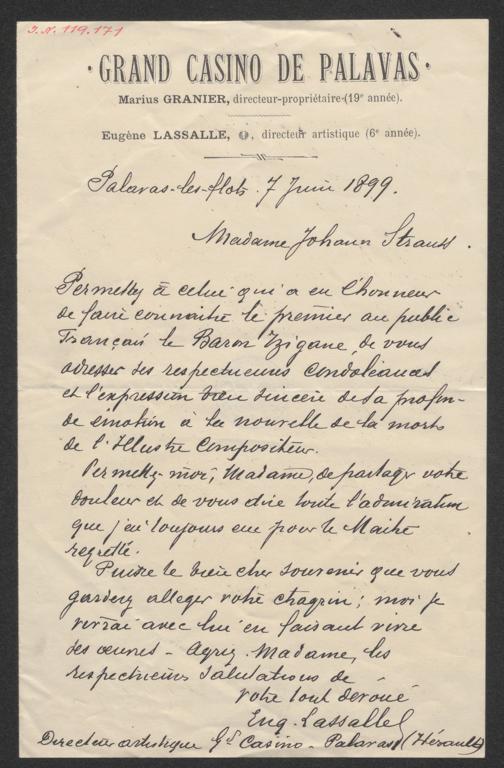 I.N. 119.171
· GRAND CASINO DE PALAVAS ·
Marius GRANIER, directeur-propriétaire (19e année).
Eugène LASSALLE, directeur artistique (6e année).
Palavas-les-flots. 7 Juin 1899.
Madame Johann Strauss.
Permettez à celui qui a eu l'honneur
de faire connaitre le premier au public
Français le Baron Tzigane, de vous
adresser ses respectueuses condoléances
et l'expression bien sincère de sa profon-
de émotion à la nouvelle de la mort
de l'Illustre Compositeur.
Permettez-moi, Madame, de partager votre
douleur et de vous dire toute l'admiration
que j'ai toujours eue pour le Maitre
regretté.
Puisse le bien cher souvenir que vous
garderez alleger votre chagrin; moi je
vivrai avec lui en faisant vivre
ses oeuvres - Agréez Madame, les
respectueuses salutations de
votre tout dévoué
Eug. Lassalle
Directeur artistique Gd Casino - Palavas (Hérault)